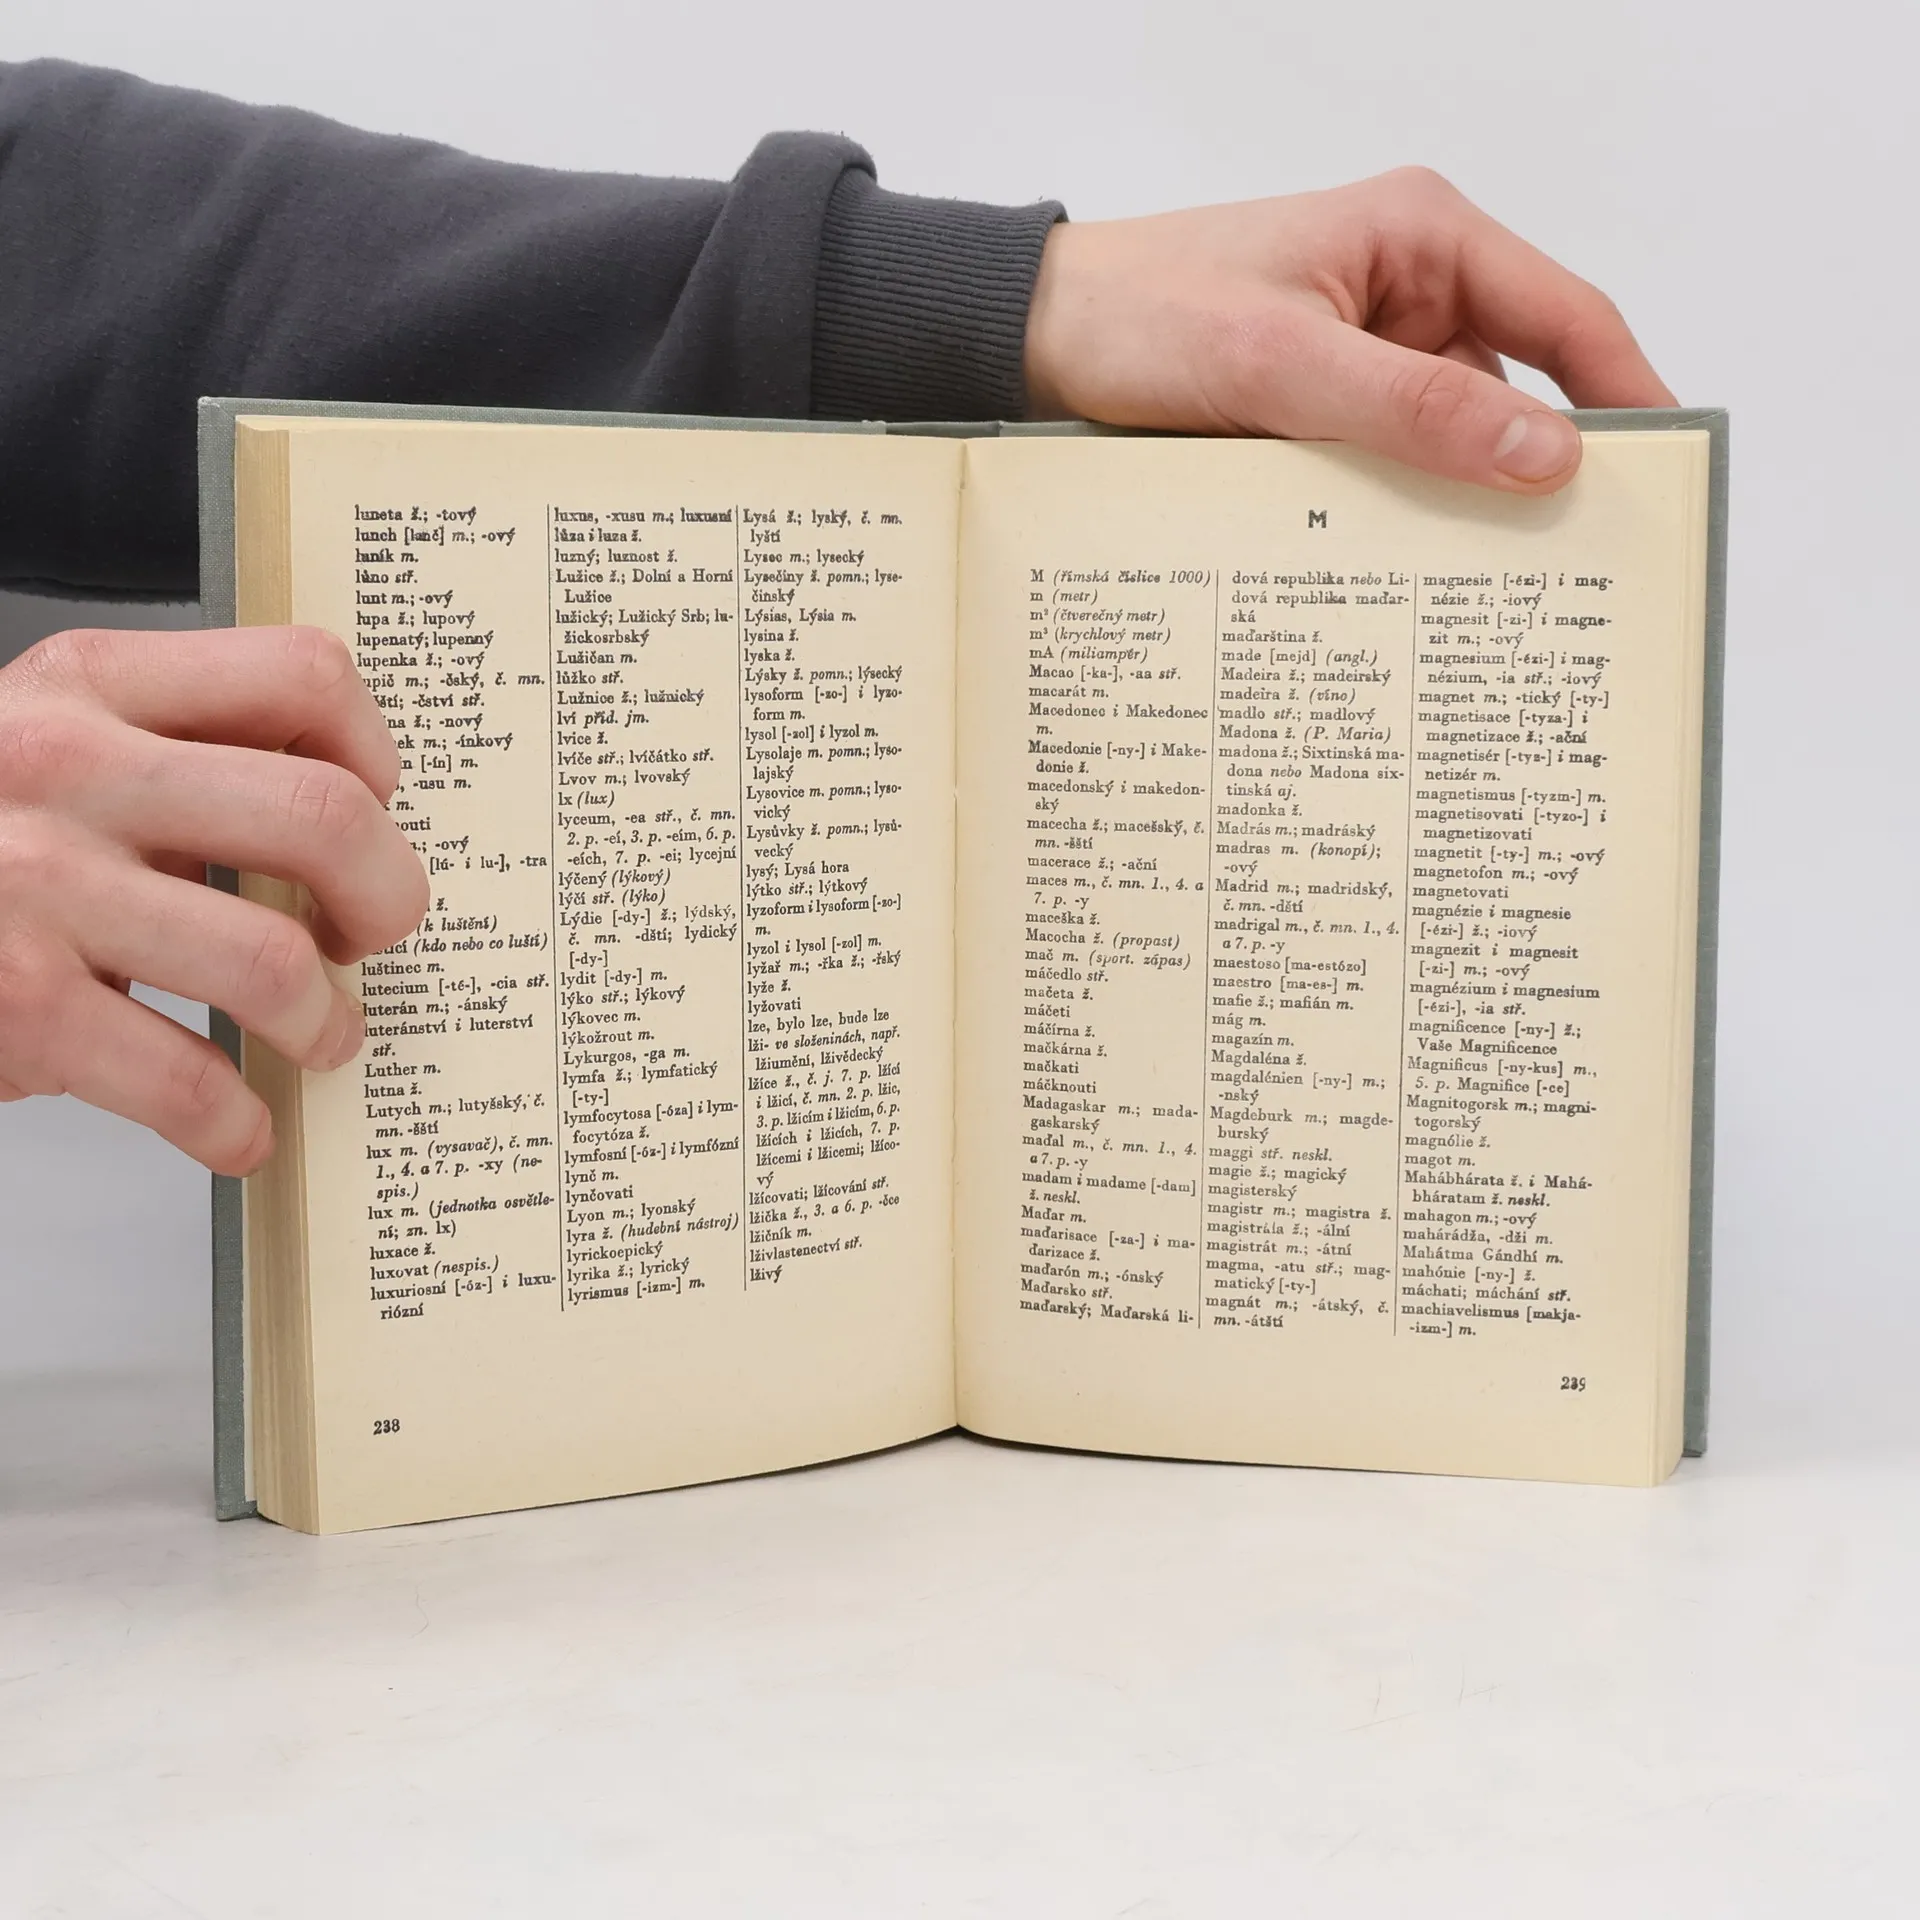 luneta ž.; -tový
lunch [lanč] m.; -ový
luník m.
lůno stř.
lunt m.; -ový
lupa ž.; lupový
lupenatý; lupenný
lupenka ž.; -ový
m.; -čský, č. mn.
-čství stř.
ž.; -nový
m.; -ínkový
[-ín] m.
-usu m.
m.
-ový
[lú- i lu-], -tra
ž.
(k luštění)
(kdo nebo co luští)
luštinec m.
lutecium [-té-], -cia stř.
luterán m.; -ánský
luteránství i luterství
stř.
Luther m.
lutna ž.
Lutych m.; lutyšský, č.
mn. -šští
lux m. (vysavač), č. mn.
1., 4. a 7. p. -xy (ne-
spis.)
lux m. (jednotka osvětle-
ní; zn. lx)
luxace ž.
luxovat (nespis.)
luxuriosní [-óz-] i luxu-
riózní
luxus, -xusu m.; luxusní
lůza i luza ž.
luzný; luznost ž.
Lužice ž.; Dolní a Horní
Lužice
lužický; Lužický Srb; lu-
žickosrbský
Lužičan m.
lůžko stř.
Lužnice ž.; lužnický
lví příd. jm.
lvice ž.
lvíče stř.; lvíčátko stř.
Lvov m.; lvovský
lx (lux)
lyceum, -ea stř., č. mn.
2. p. -eí, 3. p. -eím, 6. p.
-eích, 7. p. -ei; lycejní
lýčený (lýkový)
lýčí stř. (lýko)
Lýdie [-dy-] ž.; lýdský,
č. mn. -dští; lydický
[-dy-]
lydit [-dy-] m.
lýko stř.; lýkový
lýkovec m.
lýkožrout m.
Lykurgos, -ga m.
lymfa ž.; lymfatický
[-ty-]
lymfocytosa [-óza] i lym-
focytóza ž.
lymfosní [-óz-] i lymfózní
lynč m.
lynčovati
Lyon m.; lyonský
lyra ž. (hudební nástroj)
lyrickoepický
lyrika ž.; lyrický
lyrismus [-izm-] m.
Lysá ž.; lyský, č. mn.
lyští
Lysec m.; lysecký
Lysečiny ž. pomn.; lyse-
činský
Lýsias, Lýsia m.
lysina ž.
lyska ž.
Lýsky ž. pomn.; lýsecký
lysoform [-zo-] i lyzo-
form m.
lysol [-zol] i lyzol m.
Lysolaje m. pomn.; lyso-
lajský
Lysovice m. pomn.; lyso-
vický
Lysůvky ž. pomn.; lysů-
vecký
lysý; Lysá hora
lýtko stř.; lýtkový
lyzoform i lysoform [-zo-]
m.
lyzol i lysol [-zol] m.
lyžař m.; -řka ž.; -řský
lyže ž.
lyžovati
lze, bylo lze, bude lze
lži- ve složeninách, např.
lžiumění, lživědecký
lžíce ž., č. j. 7. p. lžící
i lžicí, č. mn. 2. p. lžic,
3. p. lžícím i lžicím, 6. p.
lžících i lžicích, 7. p.
lžícemi i lžicemi; lžíco-
vý
lžícovati; lžícování stř.
lžička ž., 3. a 6. p. -čce
lžičník m.
lživlastenectví stř.
lživý
238
M
M (římská číslice 1000)
m (metr)
m² (čtverečný metr)
m³ (krychlový metr)
mA (miliampér)
Macao [-ka-], -aa stř.
macarát m.
Macedonec i Makedonec
m.
Macedonie [-ny-] i Make-
donie ž.
macedonský i makedon-
ský
macecha ž.; macešský, č.
mn. -šští
macerace ž.; -ační
maces m., č. mn. 1., 4. a
7. p. -y
maceška ž.
Macocha ž. (propast)
mač m. (sport. zápas)
máčedlo stř.
mačeta ž.
máčeti
máčírna ž.
mačkárna ž.
mačkati
máčknouti
Madagaskar m.; mada-
gaskarský
maďal m., č. mn. 1., 4.
a 7. p. -y
madam i madame [-dam]
ž. neskl.
Maďar m.
maďarisace [-za-] i ma-
ďarizace ž.
maďarón m.; -ónský
Maďarsko stř.
maďarský; Maďarská li-
dová republika nebo Li-
dová republika maďar-
ská
maďarština ž.
made [mejd] (angl.)
Madeira ž.; madeirský
madeira ž. (víno)
madlo stř.; madlový
Madona ž. (P. Maria)
madona ž.; Sixtinská ma-
dona nebo Madona six-
tinská aj.
madonka ž.
Madrás m.; madráský
madras m. (konopí);
-ový
Madrid m.; madridský,
č. mn. -dští
madrigal m., č. mn. 1., 4.
a 7. p. -y
maestoso [ma-estózo]
maestro [ma-es-] m.
mafie ž.; mafián m.
mág m.
magazín m.
Magdaléna ž.
magdalénien [-ny-] m.;
-nský
Magdeburk m.; magde-
burský
maggi stř. neskl.
magie ž.; magický
magisterský
magistr m.; magistra ž.
magistrála ž.; -ální
magistrát m.; -átní
magma, -atu stř.; mag-
matický [-ty-]
magnát m.; -átský, č.
mn. -átští
magnesie [-ézi-] i mag-
nézie ž.; -iový
magnesit [-zi-] i magne-
zit m.; -ový
magnesium [-ézi-] i mag-
nézium, -ia stř.; -iový
magnet m.; -tický [-ty-]
magnetisace [-tyza-] i
magnetizace ž.; -ační
magnetisér [-tyz-] i mag-
netizér m.
magnetismus [-tyzm-] m.
magnetisovati [-tyzo-] i
magnetizovati
magnetit [-ty-] m.; -ový
magnetofon m.; -ový
magnetovati
magnézie i magnesie
[-ézi-] ž.; -iový
magnezit i magnesit
[-zi-] m.; -ový
magnézium i magnesium
[-ézi-], -ia stř.
magnificence [-ny-] ž.;
Vaše Magnificence
Magnificus [-ny-kus] m.,
5. p. Magnifice [-ce]
Magnitogorsk m.; magni-
togorský
magnólie ž.
magot m.
Mahábhárata ž. i Mahá-
bháratam ž. neskl.
mahagon m.; -ový
mahárádža, -dži m.
Mahátma Gándhí m.
mahónie [-ny-] ž.
máchati; máchání stř.
machiavelismus [makja-
-izm-] m.
239